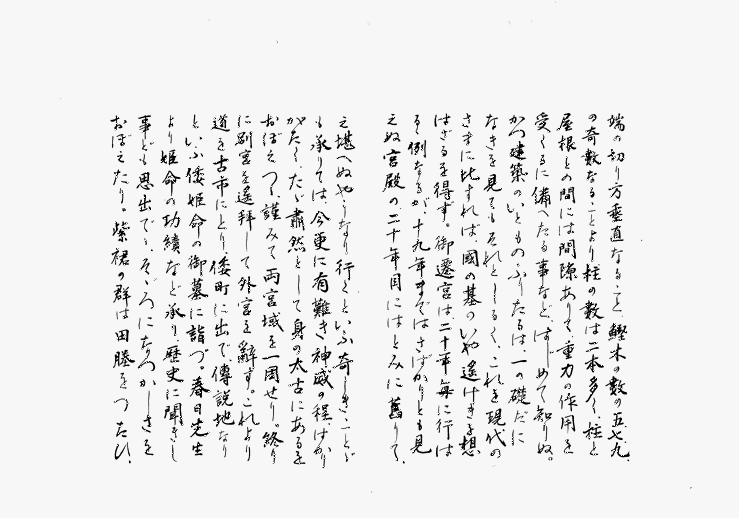 端の切り方垂直なること、鰹木の数の五、七、九、
の奇数なることより柱の数は二本多く、柱と
屋根との間には間隙ありて重力の作用を
受くるに備へたる事など、はじめて知りぬ。
かつ建築のいとものふりたるは一の礎だに
なきを見てもそれとしるく、これを現代の
さまに比すれば、國の基のいや遙けきを想
はざるを得ず。御遷宮は二十年毎に行は
るゝ例なるが、十九年まではさばかりとも見
えぬ宮殿の二十年目にはとみに舊りて、
え堪へぬやうなり行くといふ奇しきことど
も承りては、今更に有難き神威の程、はかり
がたく、たゞ肅然として身の太古にあるを
おぼえつゝ謹みて両宮域を一周せり。終り
に別宮を遙拝して外宮を辭す。これより
道を古市にとり倭町に出で、傳説地なり
といふ倭姫命の御墓に詣づ。春日先生
より姫命の功績など承り、歴史に聞きし
事ども思出でゝ、そゞろになつかしさを
おぼえたり。紫裙の群は田塍をつたひ、